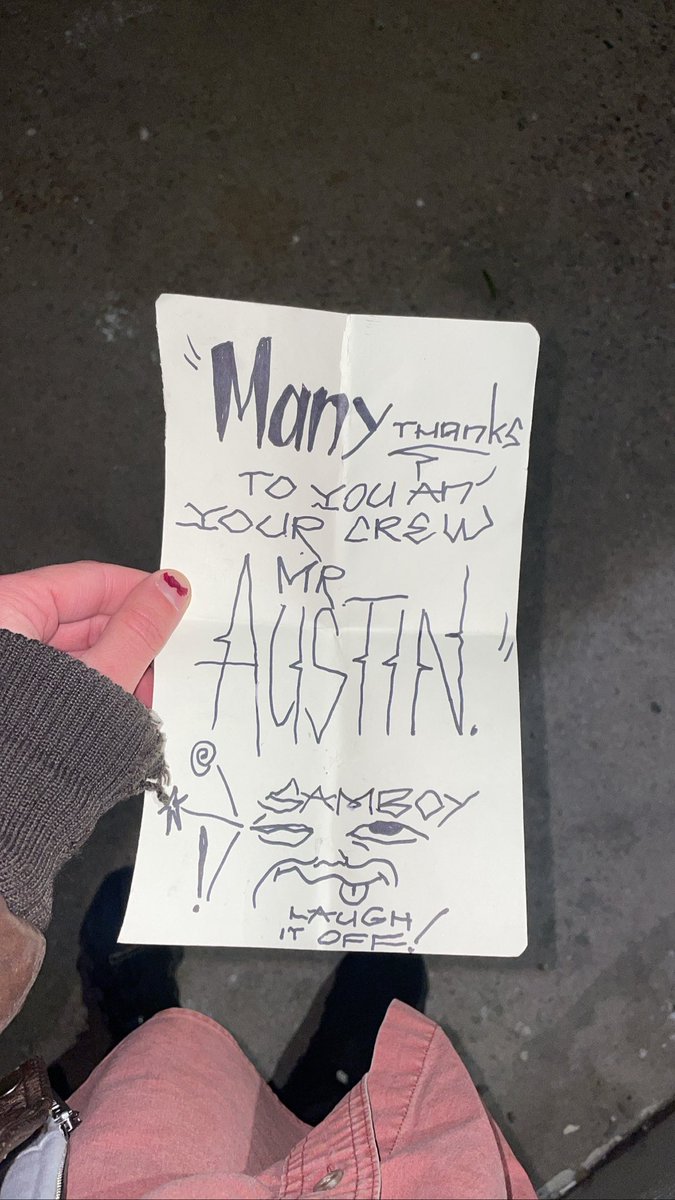 "Many THANKS
TO YOU AN'
YOUR CREW
MR.
AUSTIN."
SAMBOY
LAUGH
IT OFF!